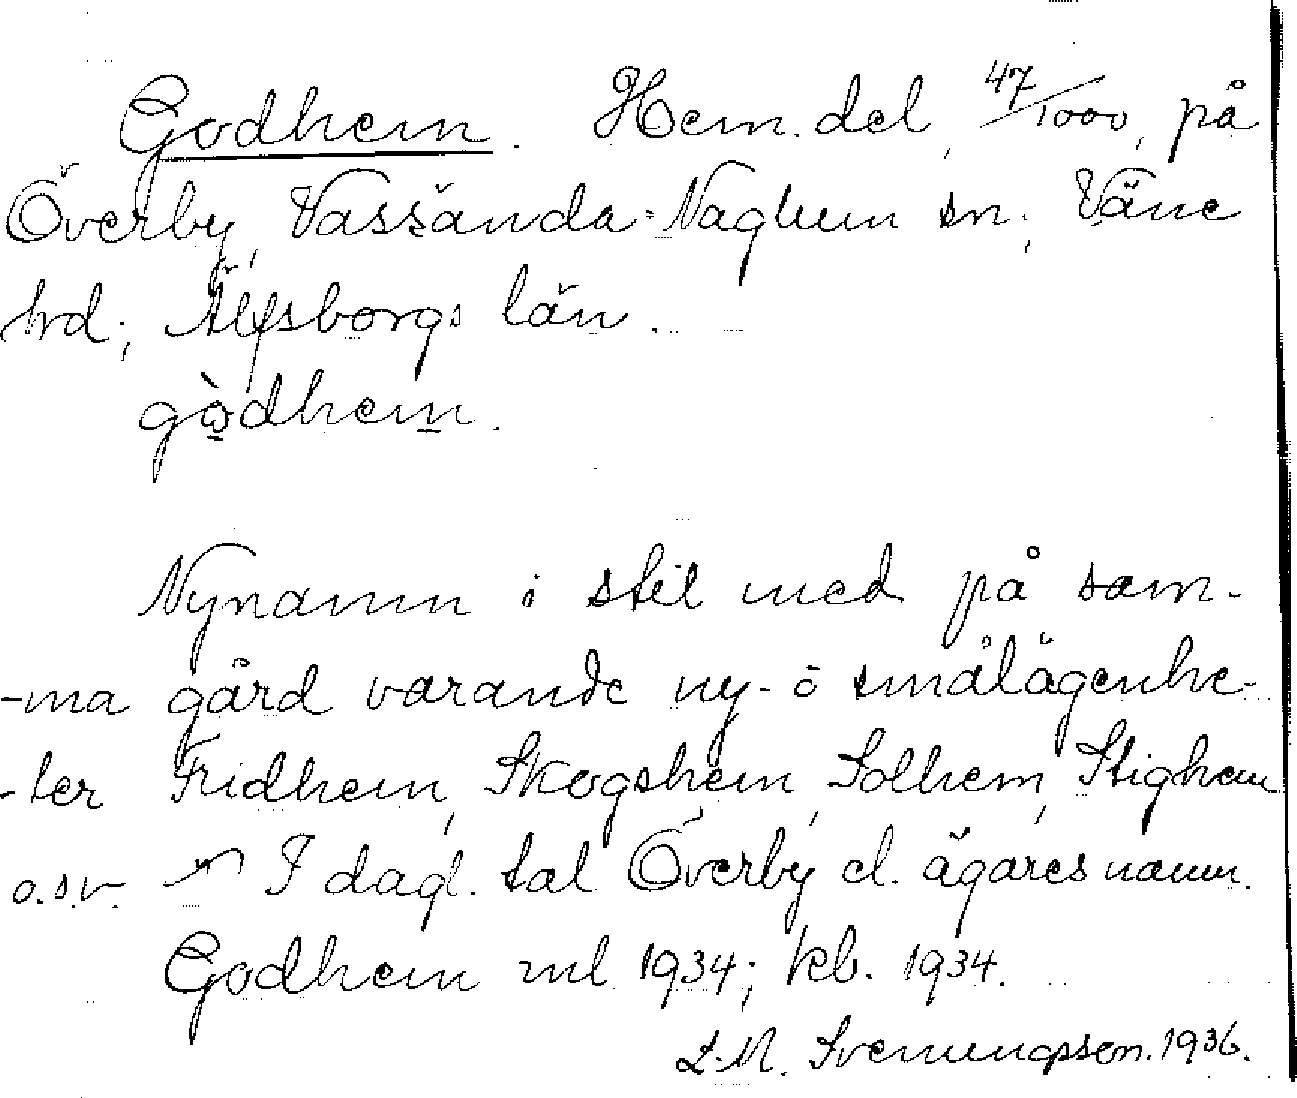 Godhem. Hem. del, 47/1000, på
Överby, Vassända-Naglum sn; Väne
hrd; Älfsborgs län.
gòdhem.
Nynamn i stil med på sam-
-ma gård varande ny- o smålägenhe-
-ter Fridhem, Skogshem, Solhem, Stighem
o.s.v. ~ I dagl. tal Överby el. ägares namn.
Godhem ml 1934; kb. 1934.
L.M. Svenungsson. 1936.